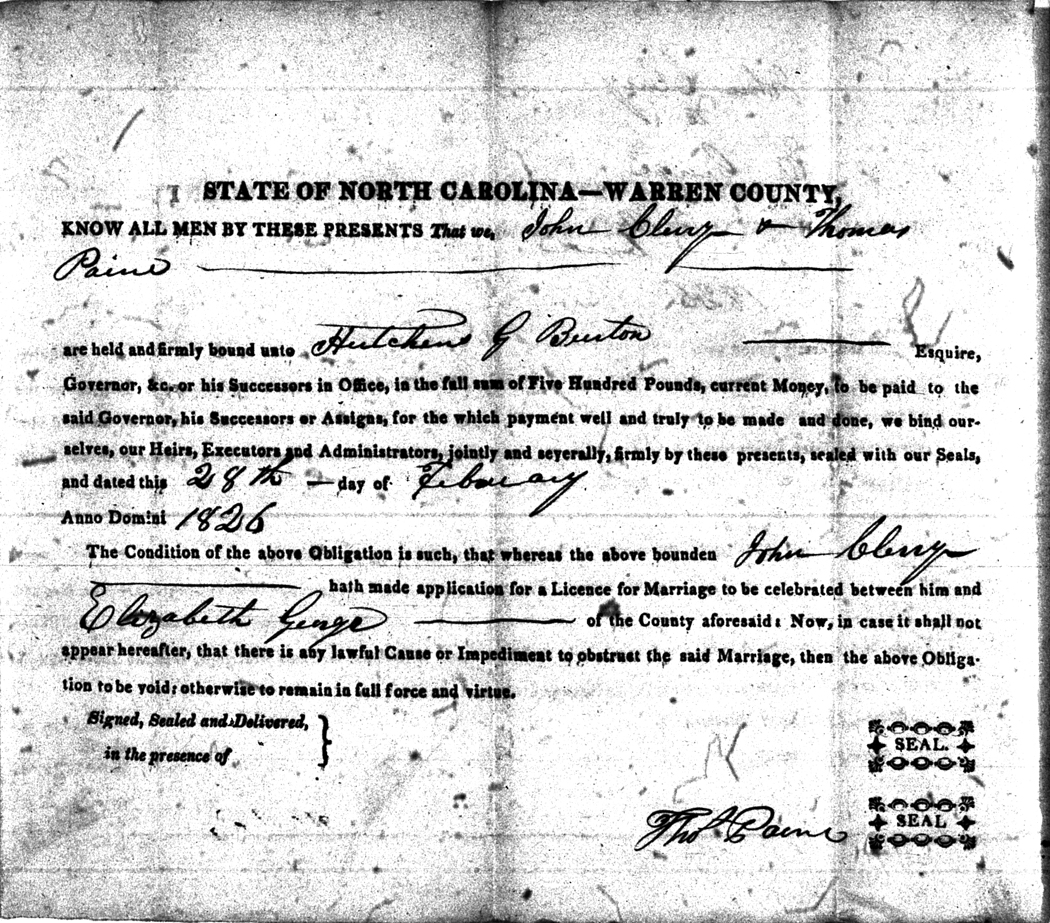 STATE OF NORTH CAROLINA—WARREN COUNTY,
KNOW ALL MEN BY THESE PRESENTS That we, John Clery & Thomas
Paine
are held and firmly bound unto Hutchens G Burton Esquire,
Governor, &c. or his Successors in Office, in the full sum of Five Hundred Pounds, current Money, to be paid to the
said Governor, his Successors or Assigns, for the which payment well and truly to be made and done, we bind our-
selves, our Heirs, Executors and Administrators, jointly and severally, firmly by these presents, sealed with our Seals,
and dated this 28th day of Febuary
Anno Domini 1826
The Condition of the above Obligation is such, that whereas the above bounden John Clery
hath made application for a Licence for Marriage to be celebrated between him and
Elizabeth George of the County aforesaid: Now, in case it shall not
appear hereafter, that there is any lawful Cause or Impediment to obstruct the said Marriage, then the above Obliga-
tion to be void; otherwise to remain in full force and virtue.
Signed, Sealed and Delivered,
in the presence of
SEAL.
Thos Paine SEAL